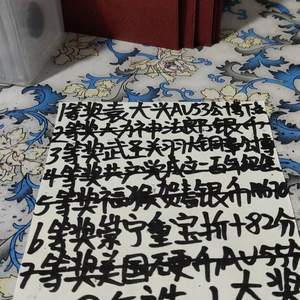 1等奖袁大头AU53公博
2等奖大为神法郎银币
3等奖武王关羽大铜章公博
4等奖共产党成立一百年纪念
5等奖福猴贺喜银币
6等奖崇宁重宝折十82分
7等奖美国硬币AU55分
大奖